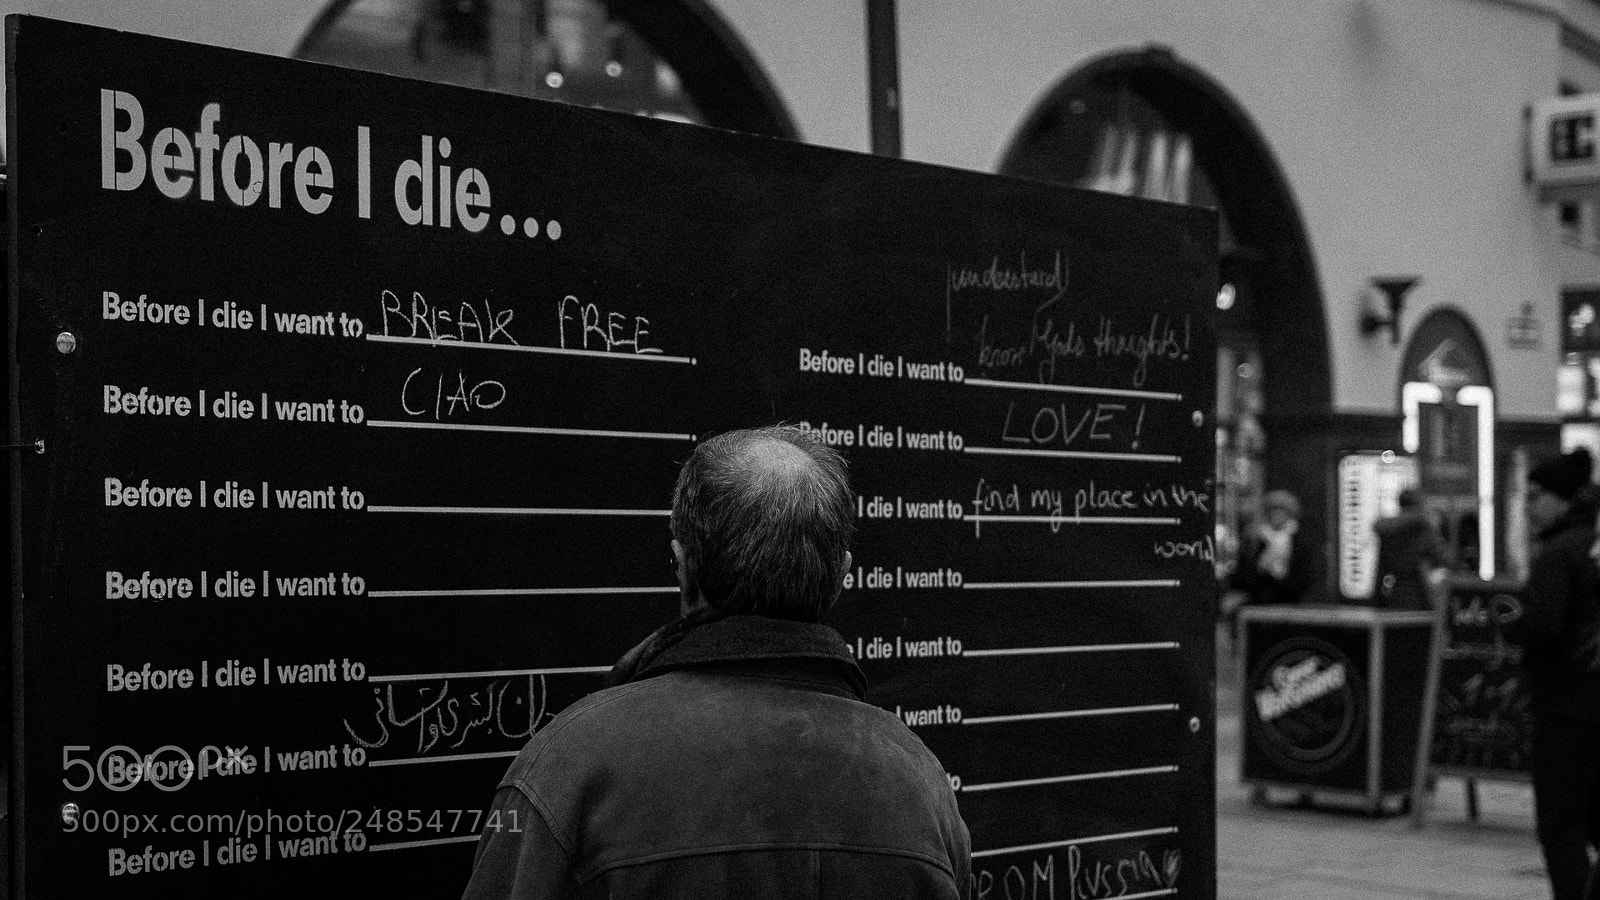 Before I die...
Before I die I want to BREAK FREE
Before I die I want to CIAO
Before I die I want to
Before I die I want to
Before I die I want to
Before I die I want to
Before I die I want to
understand
Before I die I want to know Gods thoughts!
Before I die I want to LOVE!
I die I want to find my place in the
world
e I die I want to
I die I want to
I want to
OM RUSSIA
500px
500px.com/photo/248547741